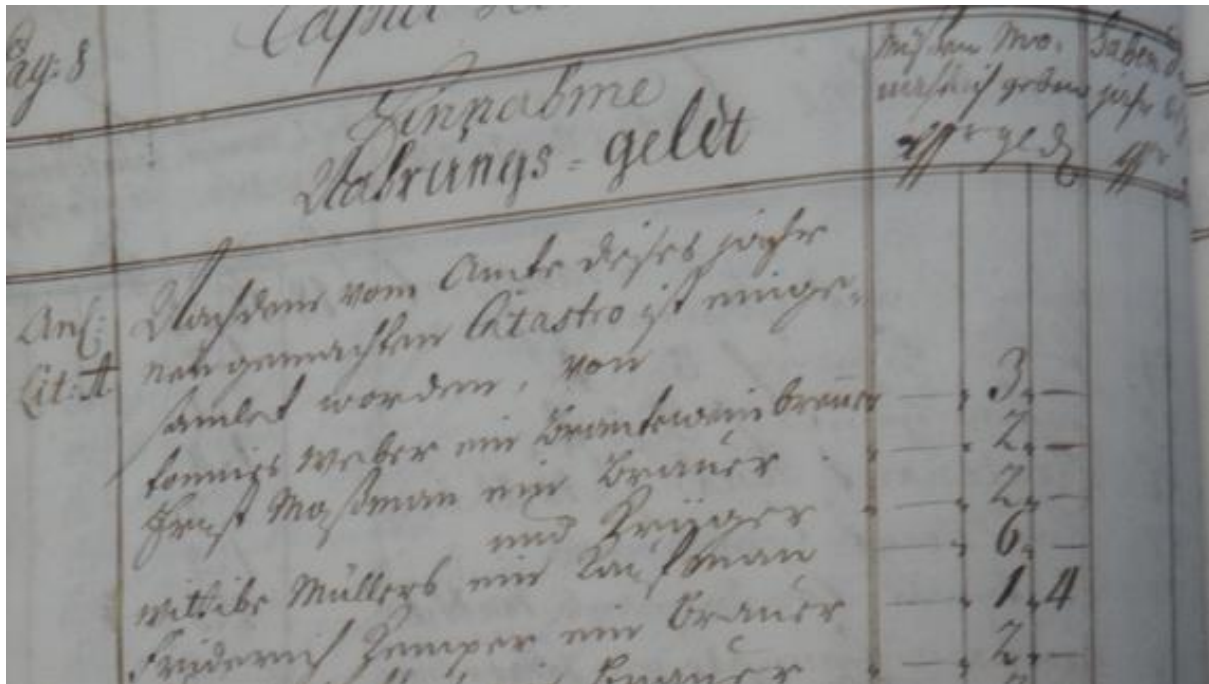 pag: 8
Caput
Einnahme
Nahrungs = geldt
Müßen Mo-
natlich geben
Haben
jahr
Anl:
Lit: A
Nachdem vom Ambte dießes jahr
neu gemachten Catastro ist einge-
samlet worden, von
tonnies Weber ein Brantewein brauer — „ 3 „ —
Ernst Maßman ein Brauer — „ 2 „ —
und Krüger — „ 2 „ —
wittibe Müllers ein Kaufman — „ 6 „ —
Friderich Kemper ein Brauer — „ 1 „ 4
Brauer — „ 2 „ —